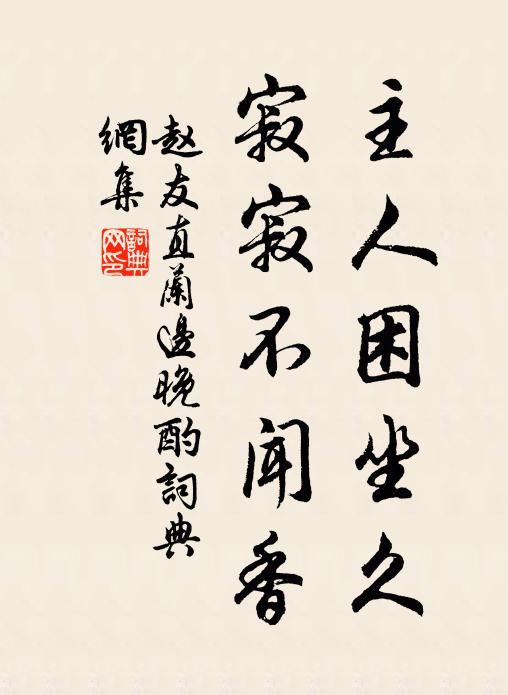 主人困坐久
寂寂不闻香
赵友直蘭邊晚酌詞典
網集
詞典網印